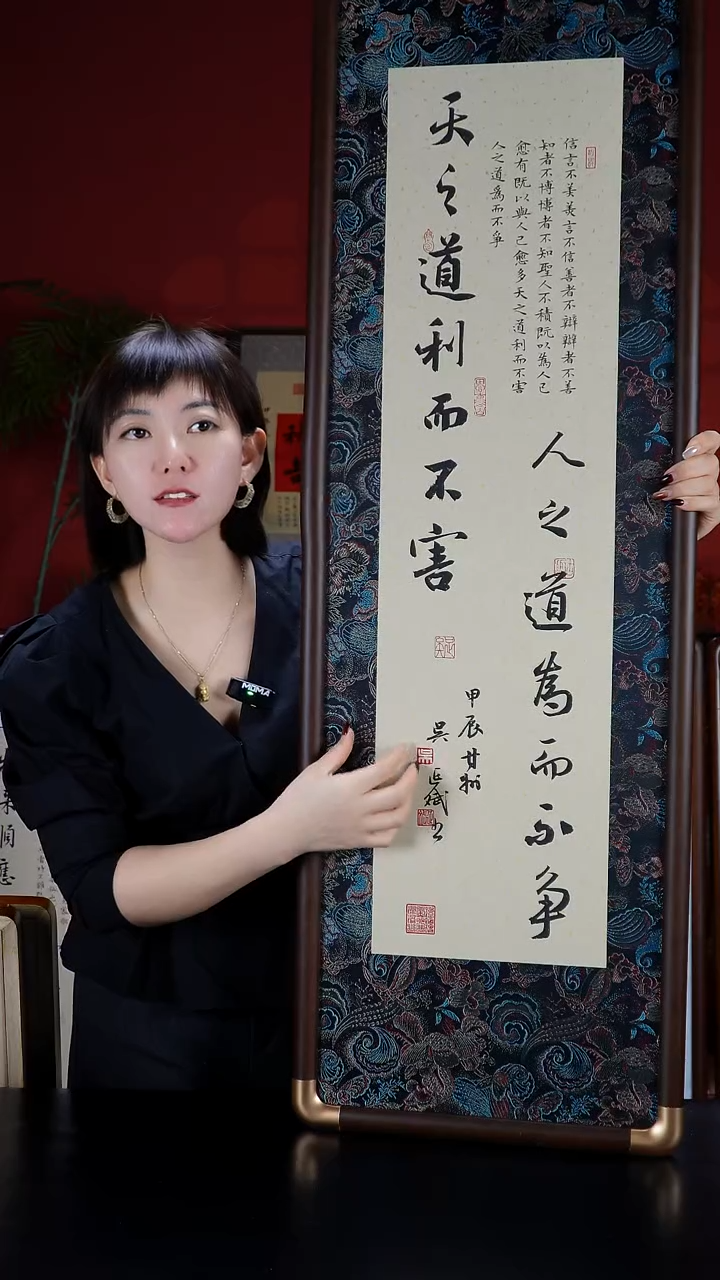 信言不美美言不信善者不辯辯者不善
知者不博博者不知聖人不積既以為人己
愈有既以與人己愈多天之道利而不害
人之道為而不爭
人之道為而不争
天之道利而不害
甲辰
吴
MOMA
順應